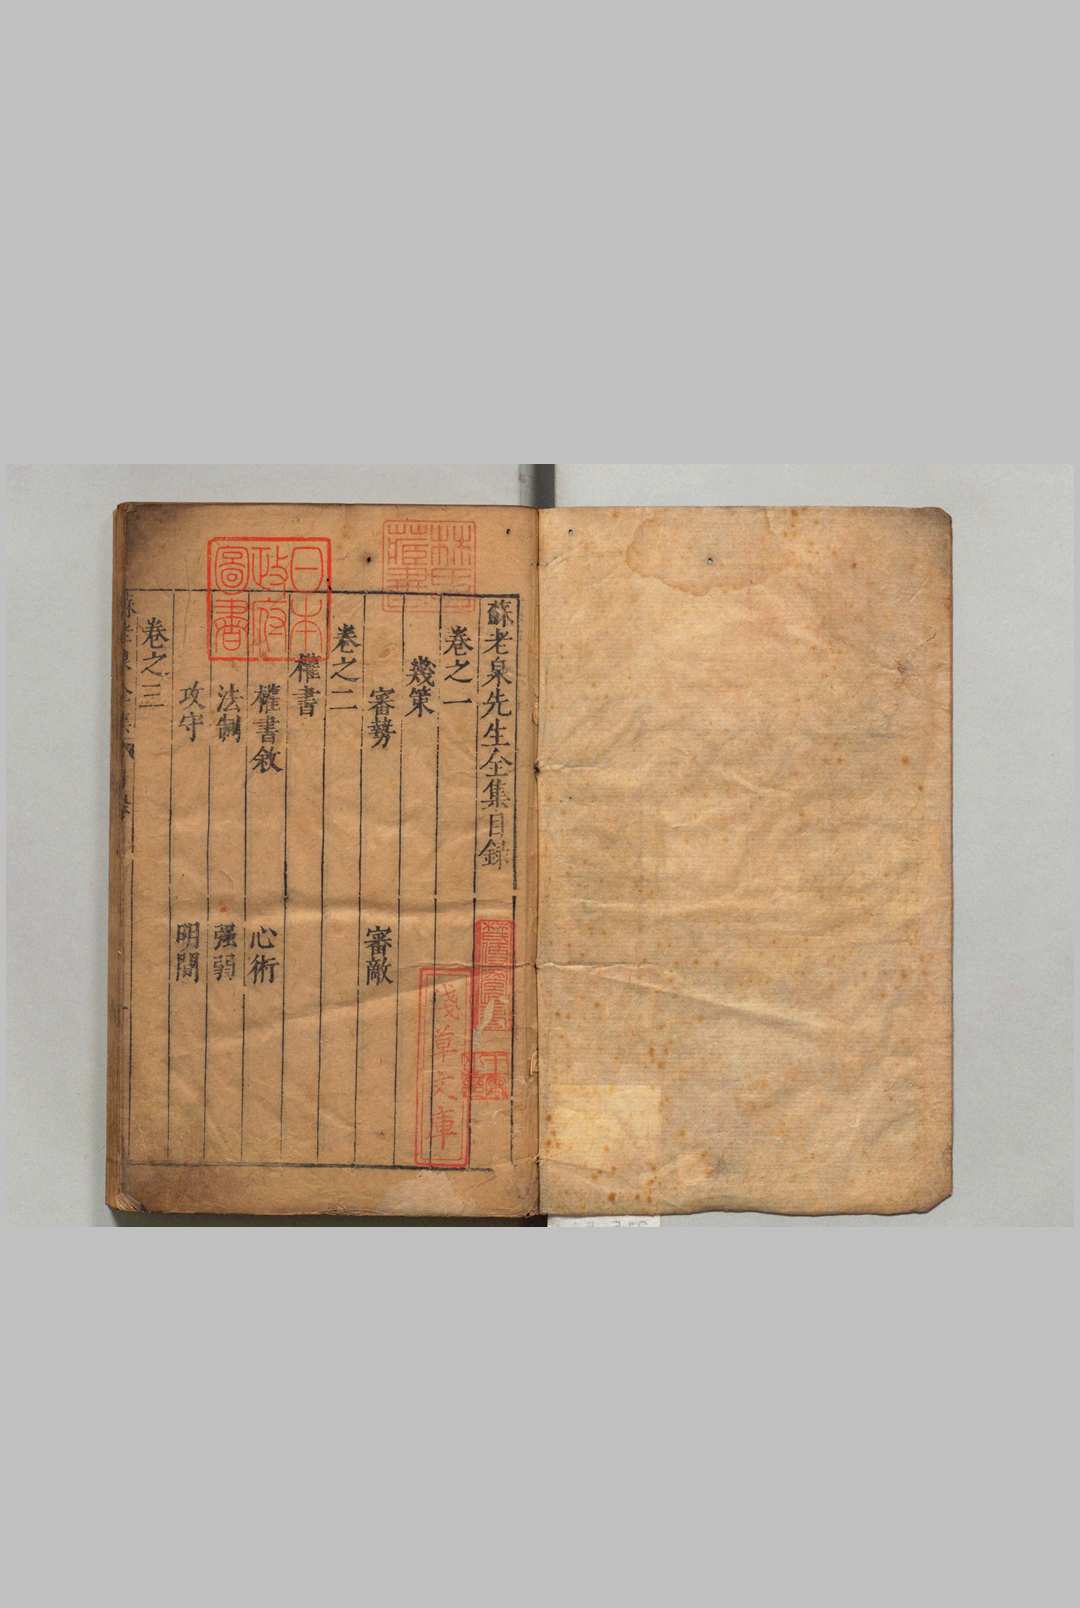 蘇老泉先生全集目録
卷之一
幾策
審勢　審敵
卷之二
權書
權書敘　心術
法制　强弱
攻守　明間
卷之三
日本
政府
圖書
林氏
藏書
淺草文庫